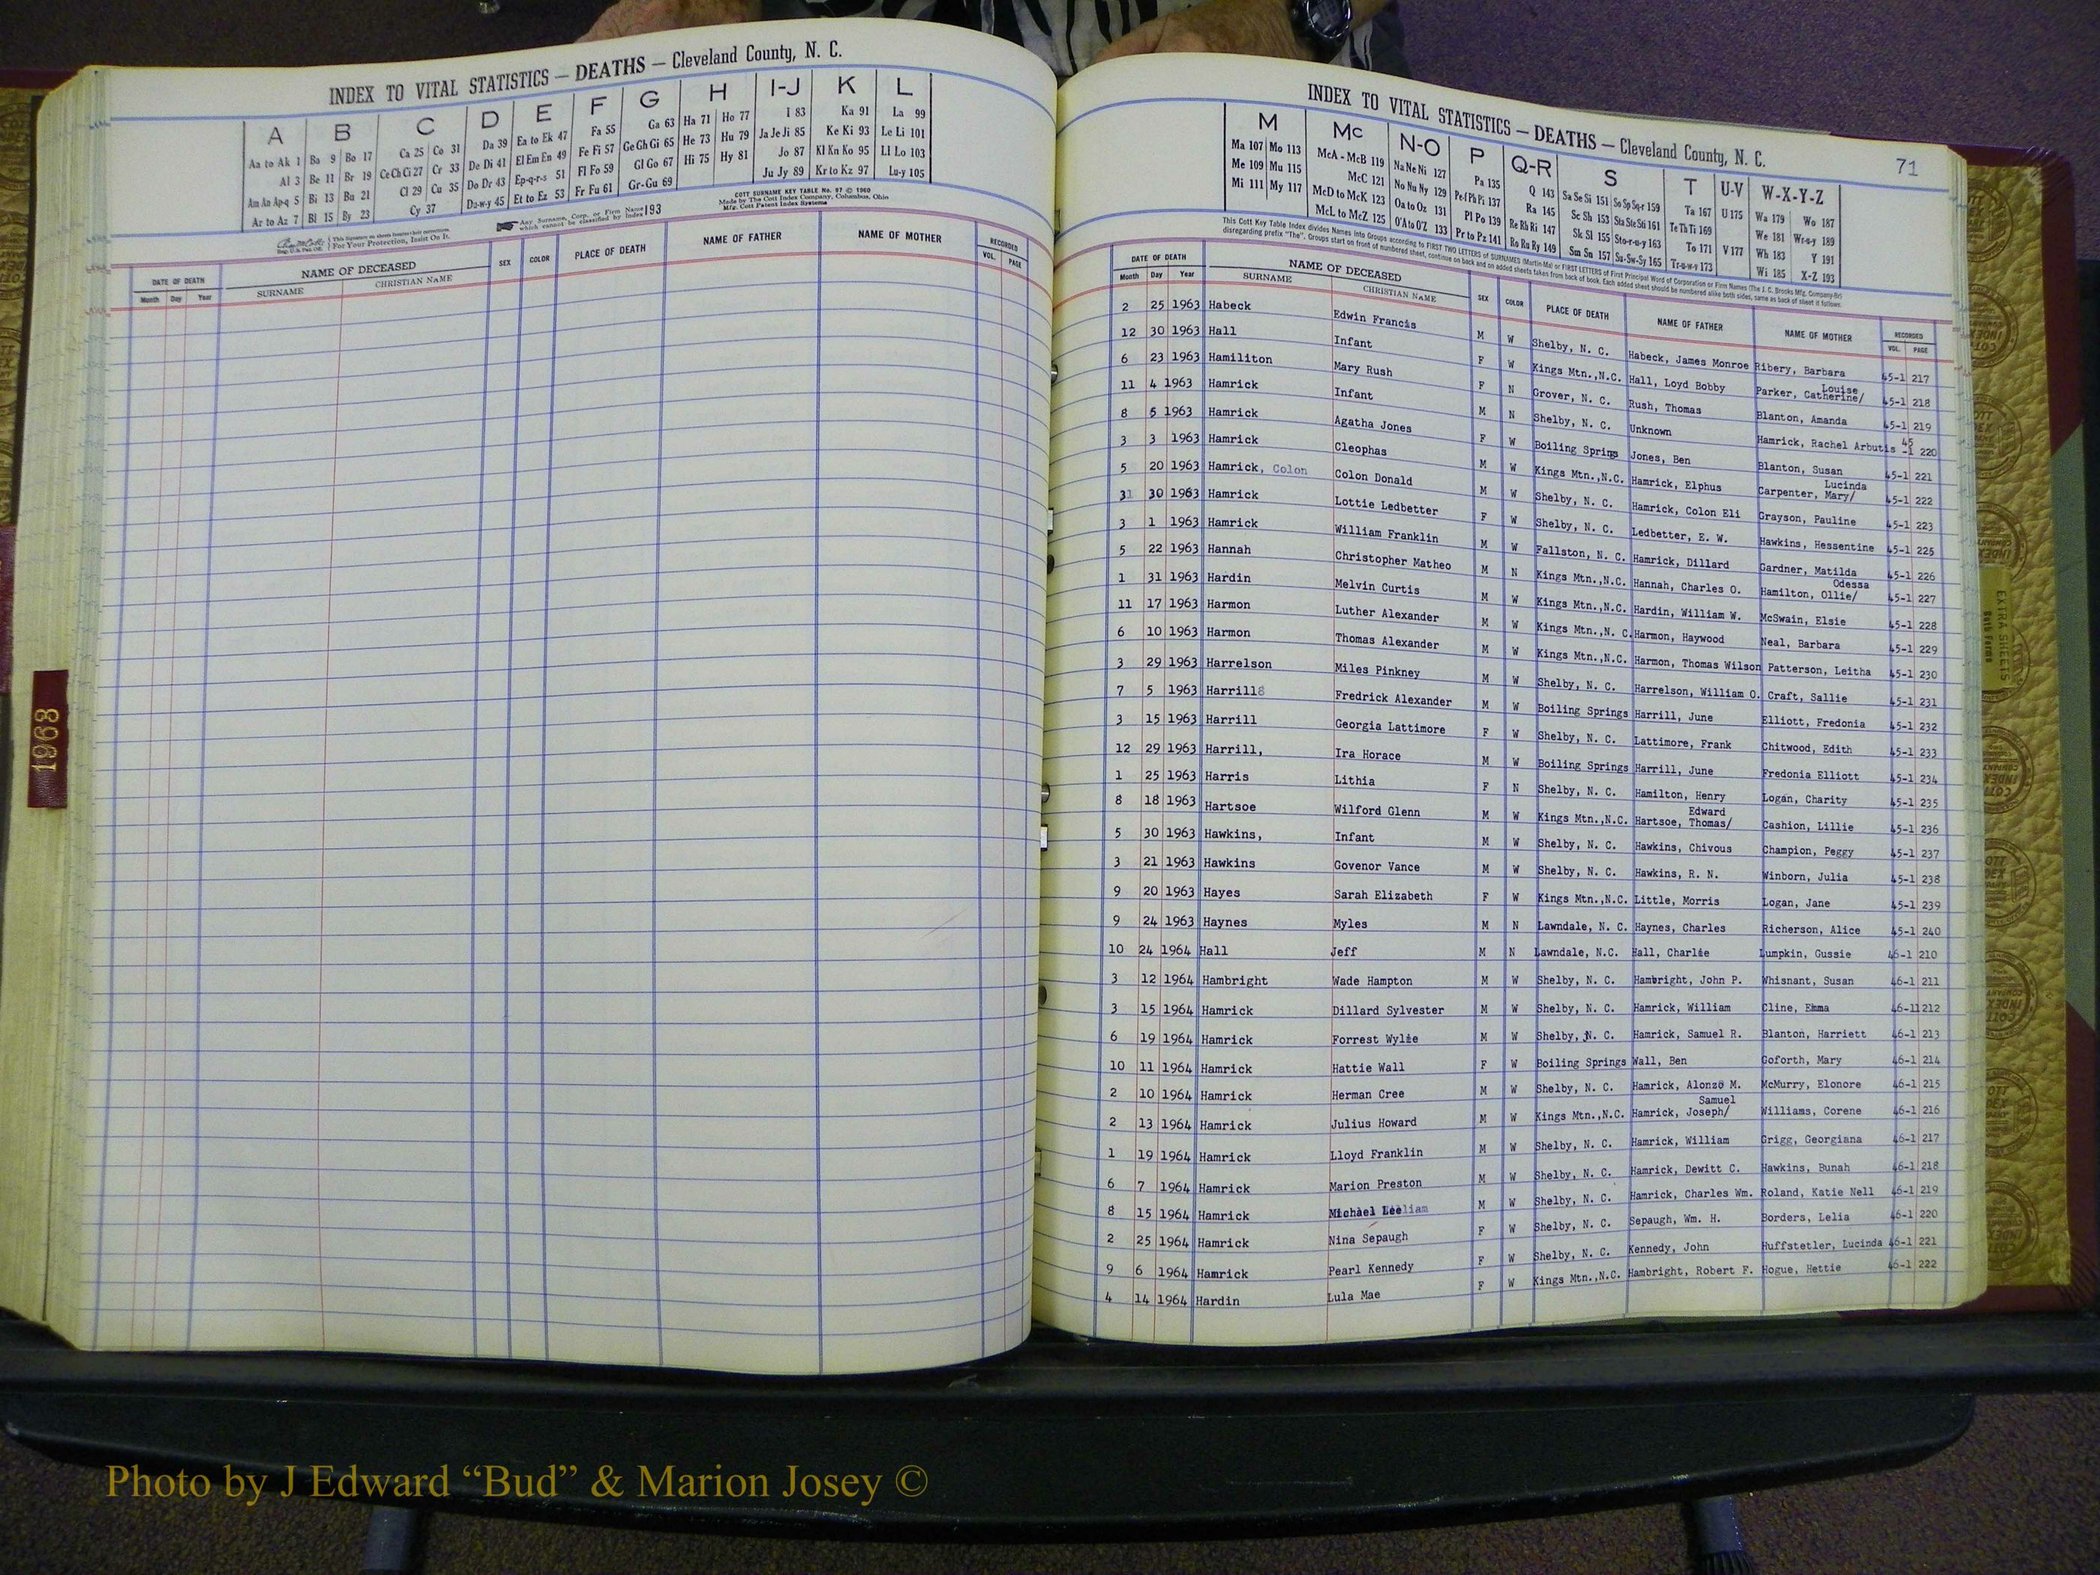 INDEX TO VITAL STATISTICS — DEATHS — Cleveland County, N. C.
A B C D E F G H I-J K L
Aa to Ak 1 Ba 9 Bo 17 Ca 25 Co 31 Da 39 Ea to Ek 47 Fa 55 Ga 63 Ha 71 Ho 77 I 83 Ka 91 La 99
Al 3 Be 11 Br 19 Ce Ch Ci 27 Cr 33 De Di 41 El Em En 49 Fe Fi 57 Ge Gh Gi 65 He 73 Hu 79 Ja Je Ji 85 Ke Ki 93 Le Li 101
Am An Ap-q 5 Bi 13 Bu 21 Cl 29 Cu 35 Do Dr 43 Ep-q-r-s 51 Fl Fo 59 Gl Go 67 Hi 75 Hy 81 Jo 87 Kl Kn Ko 95 Ll Lo 103
Ar to Az 7 Bl 15 By 23 Cy 37 Du-w-y 45 Et to Ez 53 Fr Fu 61 Gr-Gu 69 Ju Jy 89 Kr to Kz 97 Lu-y 105
For Your Protection, Insist On It.
Any Surname, Corp. or Firm Name which cannot be classified by Index 193
COTT SURNAME KEY TABLE No. 97 © 1960
Made by The Cott Index Company, Columbus, Ohio
Mfg. Cott Patent Index Systems
DATE OF DEATH NAME OF DECEASED SEX COLOR PLACE OF DEATH NAME OF FATHER NAME OF MOTHER RECORDED
Month Day Year SURNAME CHRISTIAN NAME VOL. PAGE
1963
INDEX TO VITAL STATISTICS — DEATHS — Cleveland County, N. C.
71
M Mc N-O P Q-R S T U-V W-X-Y-Z
Ma 107 Mo 113 McA - McB 119 Na Ne Ni 127 Pa 135 Q 143 Sa Se Si 151 So Sp Sq-r 159 Ta 167 U 175 Wa 179 Wo 187
Me 109 Mu 115 McC 121 No Nu Ny 129 Pe-f Ph Pi 137 Ra 145 Sc Sh 153 Sta Ste Sti 161 Te Th Ti 169 We 181 Wr-u-y 189
Mi 111 My 117 McD to McK 123 Oa to Oz 131 Pl Po 139 Re Rh Ri 147 Sk Sl 155 Sto-r-u-y 163 To 171 V 177 Wh 183 Y 191
McL to McZ 125 O'A to O'Z 133 Pr to Pz 141 Ro Ru Ry 149 Sm Sn 157 Su-Sw-Sy 165 Tr-u-w-y 173 Wi 185 X-Z 193
This Cott Key Table Index divides Names into Groups according to FIRST TWO LETTERS of SURNAMES (Martin-Ma) or FIRST LETTERS of First Principal Word of Corporation or Firm Names (The J. C. Brooks Mfg. Company-Br)
disregarding prefix "The". Groups start on front of numbered sheet, continue on back and on added sheets taken from back of book. Each added sheet should be numbered alike both sides, same as back of sheet it follows.
DATE OF DEATH NAME OF DECEASED SEX COLOR PLACE OF DEATH NAME OF FATHER NAME OF MOTHER RECORDED
Month Day Year SURNAME CHRISTIAN NAME VOL. PAGE
2 25 1963 Habeck Edwin Francis M W Shelby, N. C. Habeck, James Monroe Ribery, Barbara 45-1 217
12 30 1963 Hall Infant F W Kings Mtn.,N.C. Hall, Loyd Bobby Parker, Catherine/ Louise 45-1 218
6 23 1963 Hamiliton Mary Rush F N Grover, N. C. Rush, Thomas Blanton, Amanda 45-1 219
11 4 1963 Hamrick Infant M N Shelby, N. C. Unknown Hamrick, Rachel Arbutis 45-1 220
8 5 1963 Hamrick Agatha Jones F W Boiling Springs Jones, Ben Blanton, Susan 45-1 221
3 3 1963 Hamrick Cleophas M W Kings Mtn.,N.C. Hamrick, Elphus Carpenter, Mary/ Lucinda 45-1 222
5 20 1963 Hamrick, Colon Colon Donald M W Shelby, N. C. Hamrick, Colon Eli Grayson, Pauline 45-1 223
31 30 1963 Hamrick Lottie Ledbetter F W Shelby, N. C. Ledbetter, E. W. Hawkins, Hessentine 45-1 225
3 1 1963 Hamrick William Franklin M W Fallston, N. C. Hamrick, Dillard Gardner, Matilda 45-1 226
5 22 1963 Hannah Christopher Matheo M N Kings Mtn.,N.C. Hannah, Charles O. Hamilton, Ollie/ Odessa 45-1 227
1 31 1963 Hardin Melvin Curtis M W Kings Mtn.,N.C. Hardin, William W. McSwain, Elsie 45-1 228
11 17 1963 Harmon Luther Alexander M W Kings Mtn.,N. C. Harmon, Haywood Neal, Barbara 45-1 229
6 10 1963 Harmon Thomas Alexander M W Kings Mtn.,N.C. Harmon, Thomas Wilson Patterson, Leitha 45-1 230
3 29 1963 Harrelson Miles Pinkney M W Shelby, N. C. Harrelson, William O. Craft, Sallie 45-1 231
7 5 1963 Harrill Fredrick Alexander M W Boiling Springs Harrill, June Elliott, Fredonia 45-1 232
3 15 1963 Harrill Georgia Lattimore F W Shelby, N. C. Lattimore, Frank Chitwood, Edith 45-1 233
12 29 1963 Harrill, Ira Horace M W Boiling Springs Harrill, June Fredonia Elliott 45-1 234
1 25 1963 Harris Lithia F N Shelby, N. C. Hamilton, Henry Logan, Charity 45-1 235
8 18 1963 Hartsoe Wilford Glenn M W Kings Mtn.,N.C. Hartsoe, Thomas/ Edward Cashion, Lillie 45-1 236
5 30 1963 Hawkins, Infant M W Shelby, N. C. Hawkins, Chivous Champion, Peggy 45-1 237
3 21 1963 Hawkins Govenor Vance M W Shelby, N. C. Hawkins, R. N. Winborn, Julia 45-1 238
9 20 1963 Hayes Sarah Elizabeth F W Kings Mtn.,N.C. Little, Morris Logan, Jane 45-1 239
9 24 1963 Haynes Myles M N Lawndale, N. C. Haynes, Charles Richerson, Alice 45-1 240
10 24 1964 Hall Jeff M N Lawndale, N.C. Hall, Charlie Lumpkin, Gussie 46-1 210
3 12 1964 Hambright Wade Hampton M W Shelby, N. C. Hambright, John P. Whisnant, Susan 46-1 211
3 15 1964 Hamrick Dillard Sylvester M W Shelby, N. C. Hamrick, William Cline, Emma 46-1 212
6 19 1964 Hamrick Forrest Wylie M W Shelby, N. C. Hamrick, Samuel R. Blanton, Harriett 46-1 213
10 11 1964 Hamrick Hattie Wall F W Boiling Springs Wall, Ben Goforth, Mary 46-1 214
2 10 1964 Hamrick Herman Cree M W Shelby, N. C. Hamrick, Alonzo M. McMurry, Elonore 46-1 215
2 13 1964 Hamrick Julius Howard M W Kings Mtn.,N.C. Hamrick, Joseph/ Samuel Williams, Corene 46-1 216
1 19 1964 Hamrick Lloyd Franklin M W Shelby, N. C. Hamrick, William Grigg, Georgiana 46-1 217
6 7 1964 Hamrick Marion Preston M W Shelby, N. C. Hamrick, Dewitt C. Hawkins, Bunah 46-1 218
8 15 1964 Hamrick Michael Lee M W Shelby, N. C. Hamrick, Charles Wm. Roland, Katie Nell 46-1 219
2 25 1964 Hamrick Nina Sepaugh F W Shelby, N. C. Sepaugh, Wm. H. Borders, Lelia 46-1 220
9 6 1964 Hamrick Pearl Kennedy F W Shelby, N. C. Kennedy, John Huffstetler, Lucinda 46-1 221
4 14 1964 Hardin Lula Mae F W Kings Mtn.,N.C. Hambright, Robert F. Hogue, Hettie 46-1 222
EXTRA SHEETS
Photo by J Edward “Bud” & Marion Josey ©